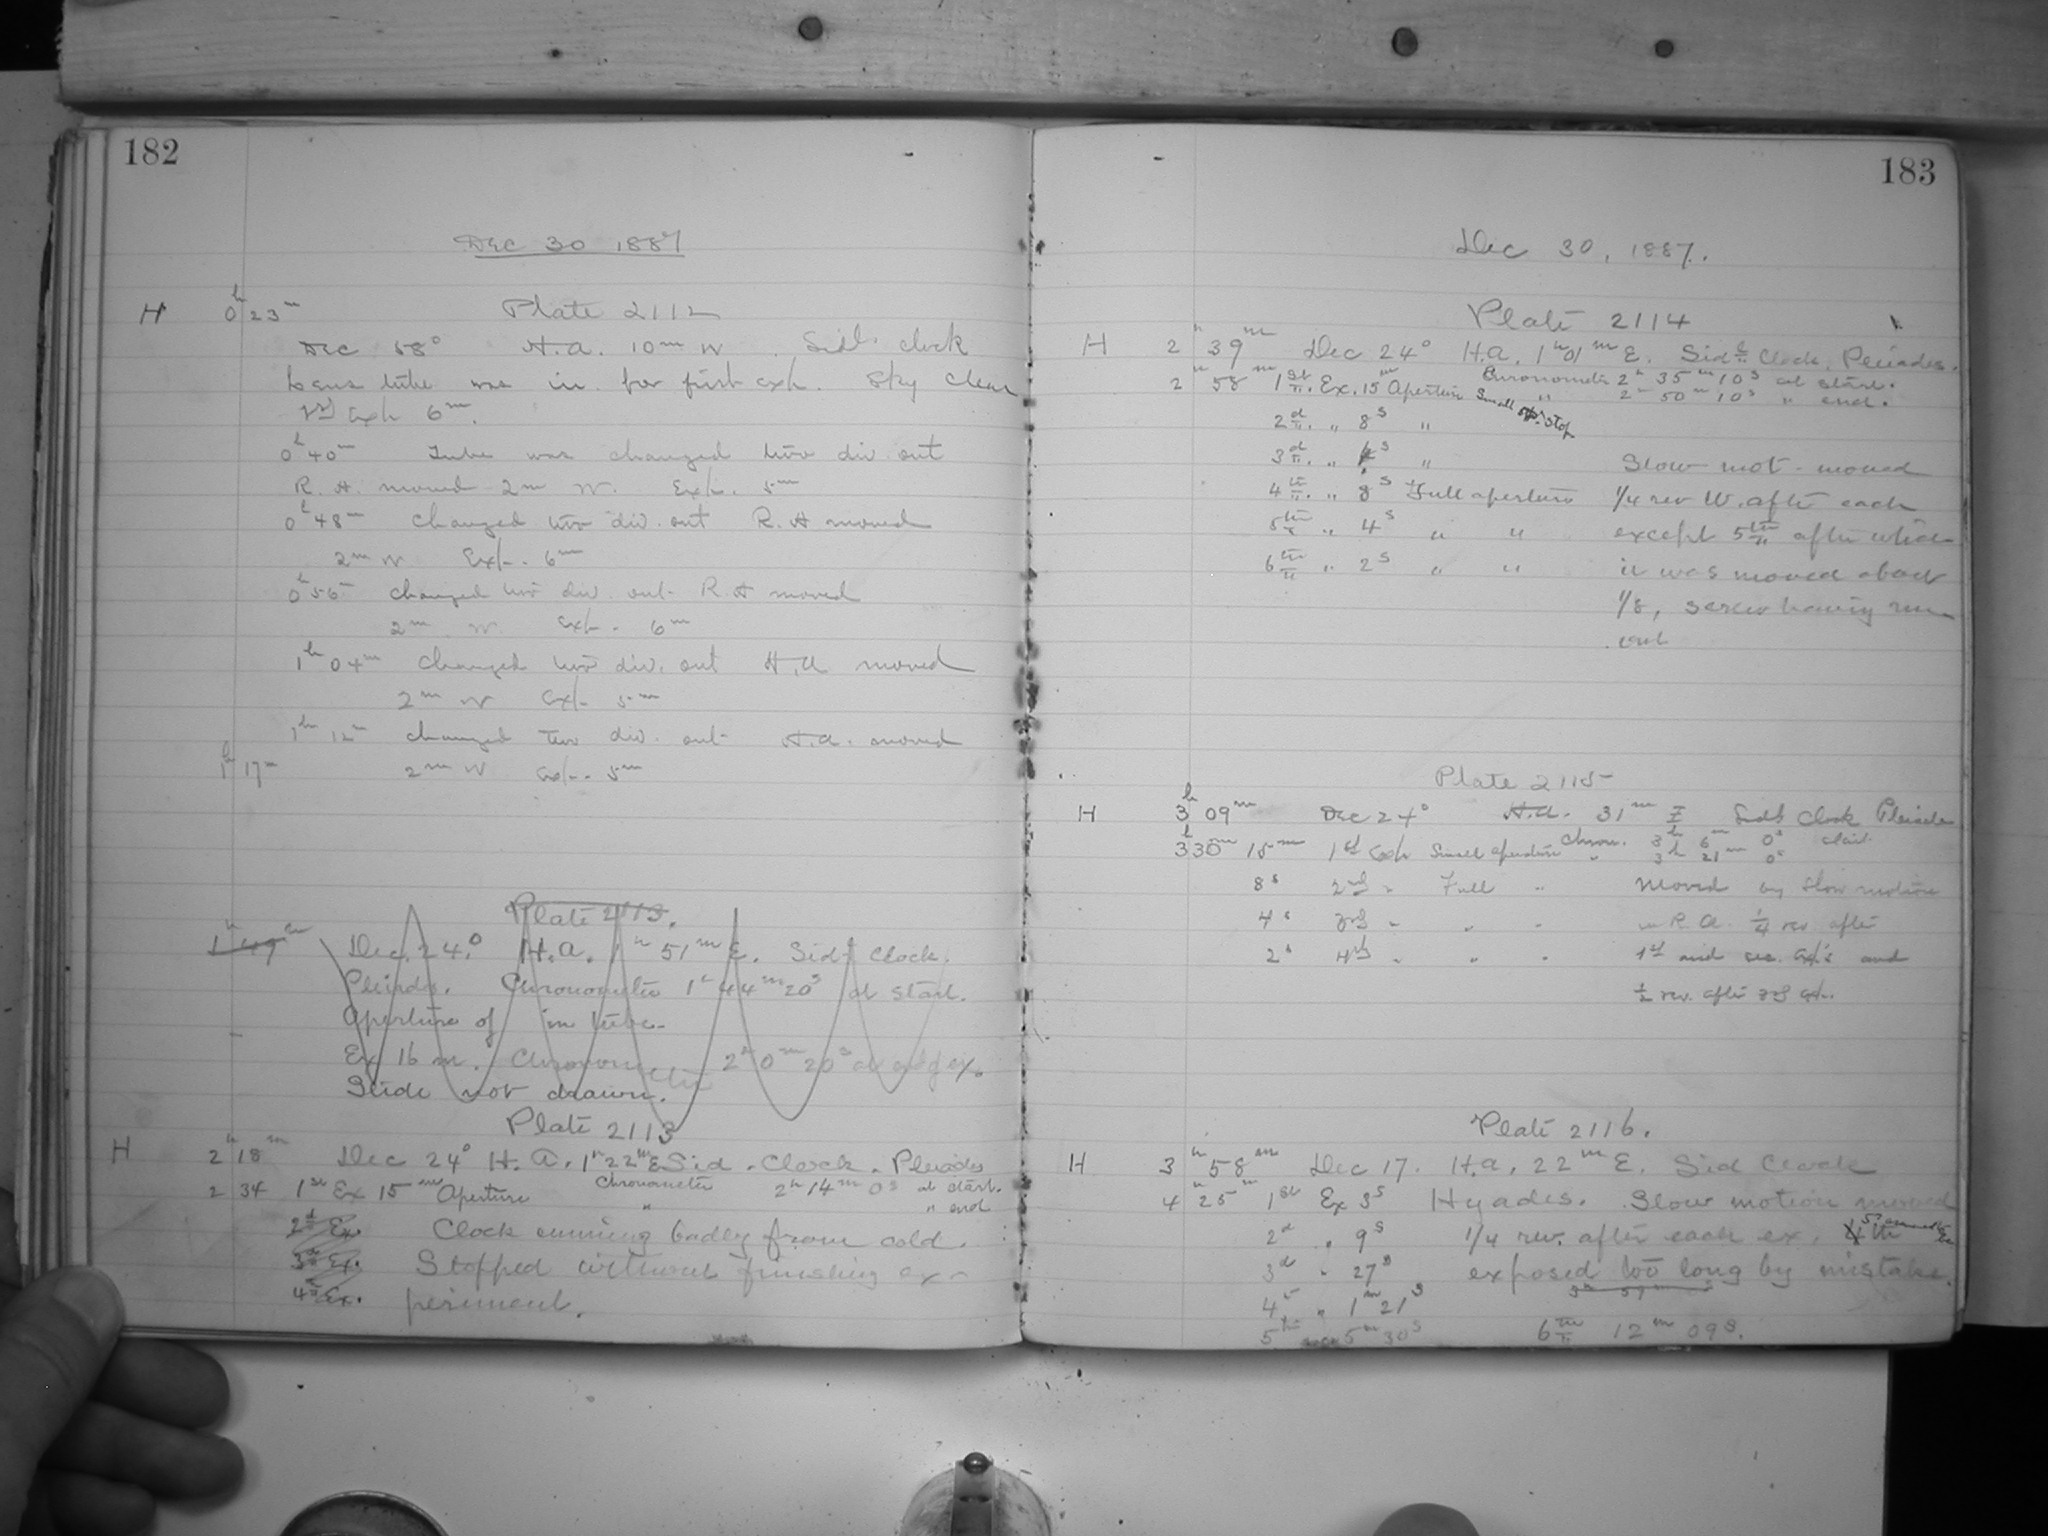 182
Dec 30 1887
H 0h 23m Plate 2112
Dec 58° H.A. 10m W. Sidl. clock
Lens tube was in for first exp. Sky clear
1st Exp 6m.
0h 40m Tube was changed two div. out
R.A. moved 2m W. Exp. 5m
0h 48m changed two div. out R.A moved
2m W Exp. 6m
0h 56m changed two div. out R.A moved
2m W. Exp. 6m
1h 04m changed two div. out H.A. moved
2m W Exp. 5m
1h 12m changed two div. out H.A. moved
1h 17m 2m W Exp. 5m
Plate 2113.
1h 49m Dec. 24° H.A. 1h 51m E. Sidl Clock.
Pleiades. Chronometer 1h 44m 20s at start.
Aperture of in tube.
Ex 16 m. Chronometer 2h 0m 20s at end of ex.
Slide not drawn.
Plate 2113
H 2h 18m Dec 24° H.A. 1h 22m E Sid. Clock. Pleiades
2 34 1st Ex 15m Aperture Chronometer 2h 14m 0s at start.
" " end
2d Ex. Clock running badly from cold.
3d Ex. Stopped without finishing ex-
4th Ex. periment.
183
Dec 30, 1887.
Plate 2114
H 2h 39m Dec 24° H.A. 1h 01m E. Sidl Clock. Pleiades.
2h 58m 1st Ex. 15m Aperture Small stop Chronometer 2h 35m 10s at start.
" 2h 50m 10s " end.
2d " 8s "
3d " s " Slow mot. moved
4th " 8s Full aperture 1/4 rev W. after each
5th " 4s " " except 5th after which
6th " 2s " " it was moved about
1/8, screw having run
out
Plate 2115
H 3h 09m Dec 24° H.A. 31m E Sidl Clock Pleiades
3h 30m 15m 1st Exp Small aperture Chron. 3h 6m 0s start
" 3h 21m 0s
8s 2nd " Full " Moved by slow motion
4s 3rd " " " in R.A. 1/4 rev after
2s 4th " " " 1st and sec. Exp's and
1/2 rev. after 3rd Exp.
Plate 2116.
H 3h 58m Dec 17. H.A. 22m E. Sid Clock
4h 25m 1st Ex 3s Hyades. Slow motion moved
2d " 9s 1/4 rev. after each ex.
3d " 27s exposed too long by mistake.
4th " 1m 21s
5th 5m 30s 6th 12m 09s.